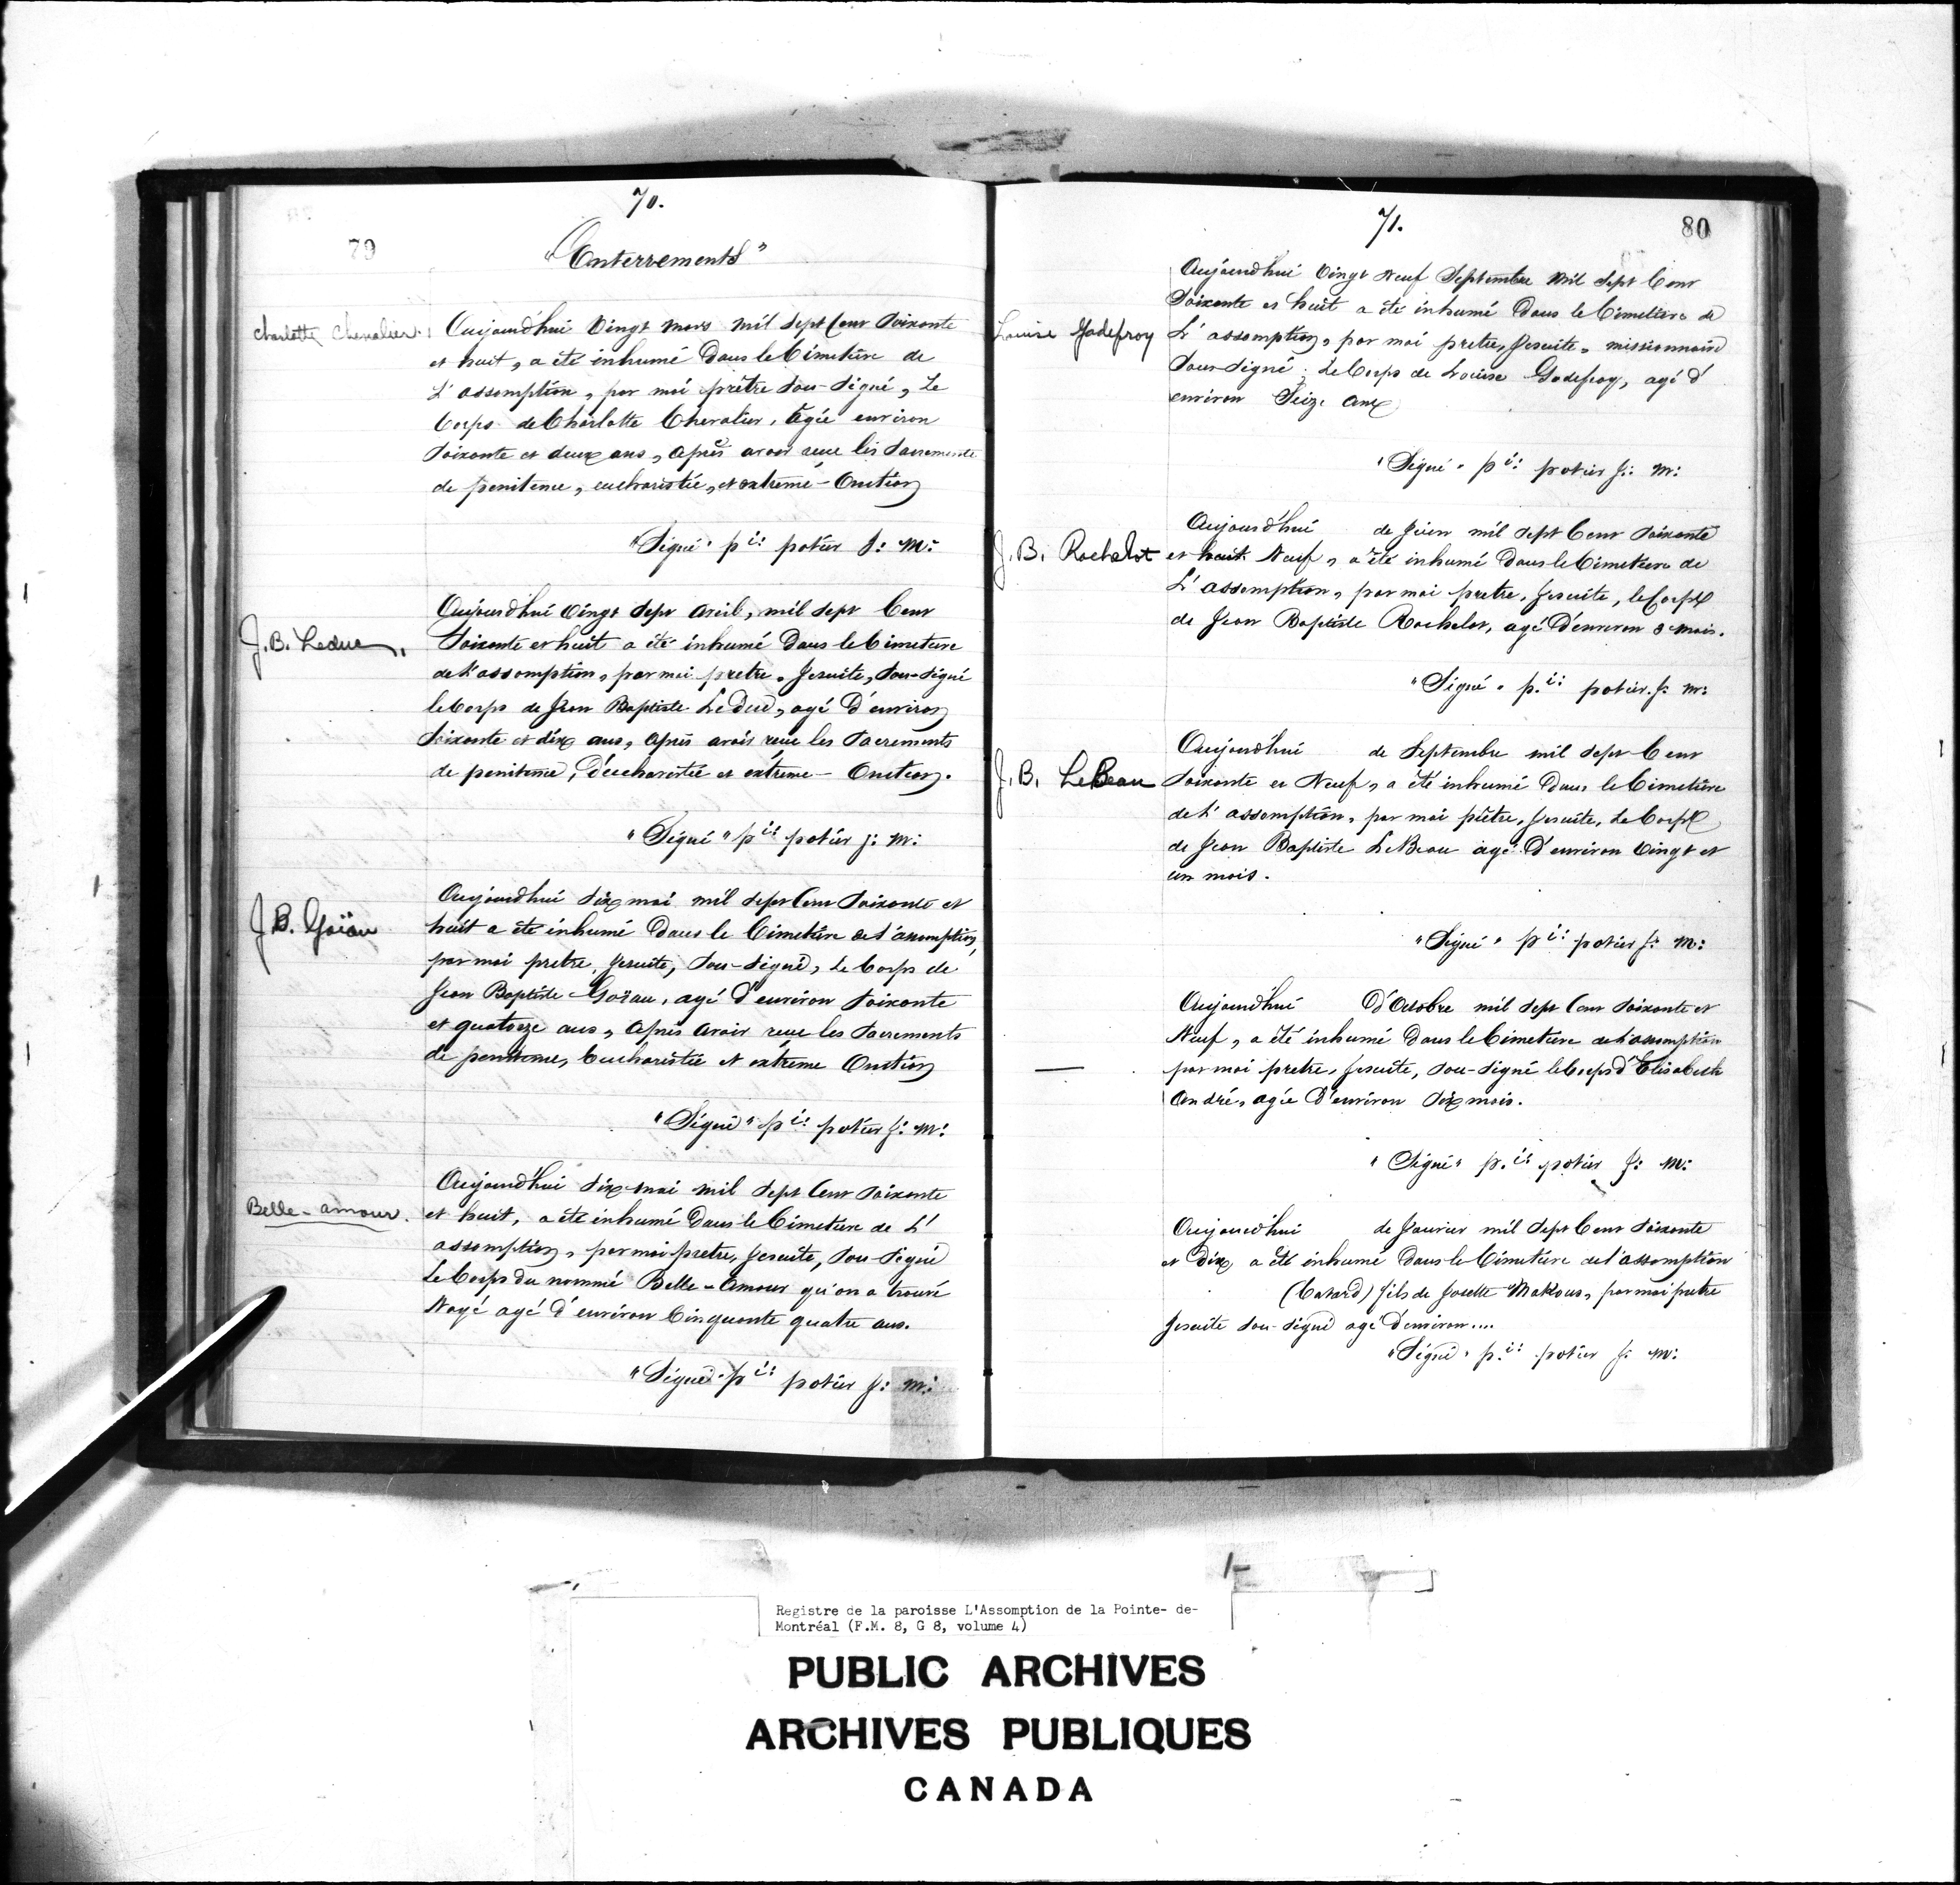 70.
79
"Enterrements"
Charlotte Chevalier.
Aujourd'hui Vingt Mars mil Sept Cent Soixante
et huit, a été inhumé Dans le Cimetière de
L'assomption, par moi prêtre Sou-Signé, Le
Corps de Charlotte Chevalier, Agée environ
Soixante et deux ans, Après avoir reçue les Sacrements
de penitence, eucharistie, et extreme-Onction
"Signé" p ie: potier J: M:
J. B. Leduc.
Aujourd'hui Vingt Sept Avril, mil Sept Cent
Soixante et huit a été inhumé Dans le Cimetiere
de L'assomption, par moi pretre, Jesuite, Sou-Signé
le Corps de Jean Baptiste Le Duc, agé D'environ
Soixante et dix ans, Après avoir reçue les Sacrements
de penitence, D'eucharistie et extreme-Onction.
"Signé" p ie: potier J: M:
J. B. Goïau
Aujourdhui Dix mai mil Sept Cent Soixante et
huit a été inhumé Dans le Cimetière de L'assomption,
par moi pretre, Jesuite, Sou-Signé, Le Corps de
Jean Baptiste Goïau, agé D'environ Soixante
et quatorze ans, Après avoir reçue les Sacrements
de penitence, Eucharistie et extrême Onction
"Signé" p ie: potier J: M:
Belle-amour.
Aujourd'hui Dix mai mil Sept Cent Soixante
et huit, a été inhumé Dans le Cimetiere de L'
assomption, par moi pretre, Jesuite, Sou-Signé
Le Corps du nommé Belle-Amour qu'on a trouvé
Noyé agé d'environ Cinquante quatre ans.
"Signé" p ie: potier J: M:
71.
80
Louise Godefroy
Aujourd'hui Vingt Neuf Septembre Mil Sept Cent
Soixante et huit a été inhumé Dans le Cimetière de
L'assomption, par moi pretre, Jesuite, missionnaire
Sous-Signé; Le Corps de Louise Godefroy, agé d'
environ Seize ans
"Signé" p ie: potier J: M:
J. B. Rochelot
Aujourd'hui de Juin mil Sept Cent Soixante
et huit Neuf, a été inhumé Dans le Cimetiere de
L'assomption, par moi pretre, Jesuite, le Corps
de Jean Baptiste Rochelot, agé D'environ 3 mois.
"Signé" p. ie: potier. J: M:
J. B. LeBeau
Aujourd'hui de Septembre mil Sept Cent
Soixante et Neuf, a été inhumé Dans le Cimetière
de L'assomption, par moi prêtre, Jesuite, Le Corps
de Jean Baptiste LeBeau agé D'environ Vingt et
un mois.
"Signé" p ie: potier J: M:
Aujourd'hui D'Octobre mil Sept Cent Soixante et
Neuf, a été inhumé Dans le Cimetiere de L'assomption
par moi pretre, Jesuite, Sou-Signé le Corps d'Elisabeth
André, agée D'environ Dix mois.
"Signé" p. ie: potier J: M:
Aujourd'hui de Janvier mil Sept Cent Soixante
et Dix a été inhumé Dans le Cimetière de L'assomption
(batard) fils de Josette Makous, par moi pretre
Jesuite Sou-Signé agé D'environ....
"Signé" p. ie: potier J: M:
Registre de la paroisse L'Assomption de la Pointe- de-
Montréal (F.M. 8, G 8, volume 4)
PUBLIC ARCHIVES
ARCHIVES PUBLIQUES
CANADA